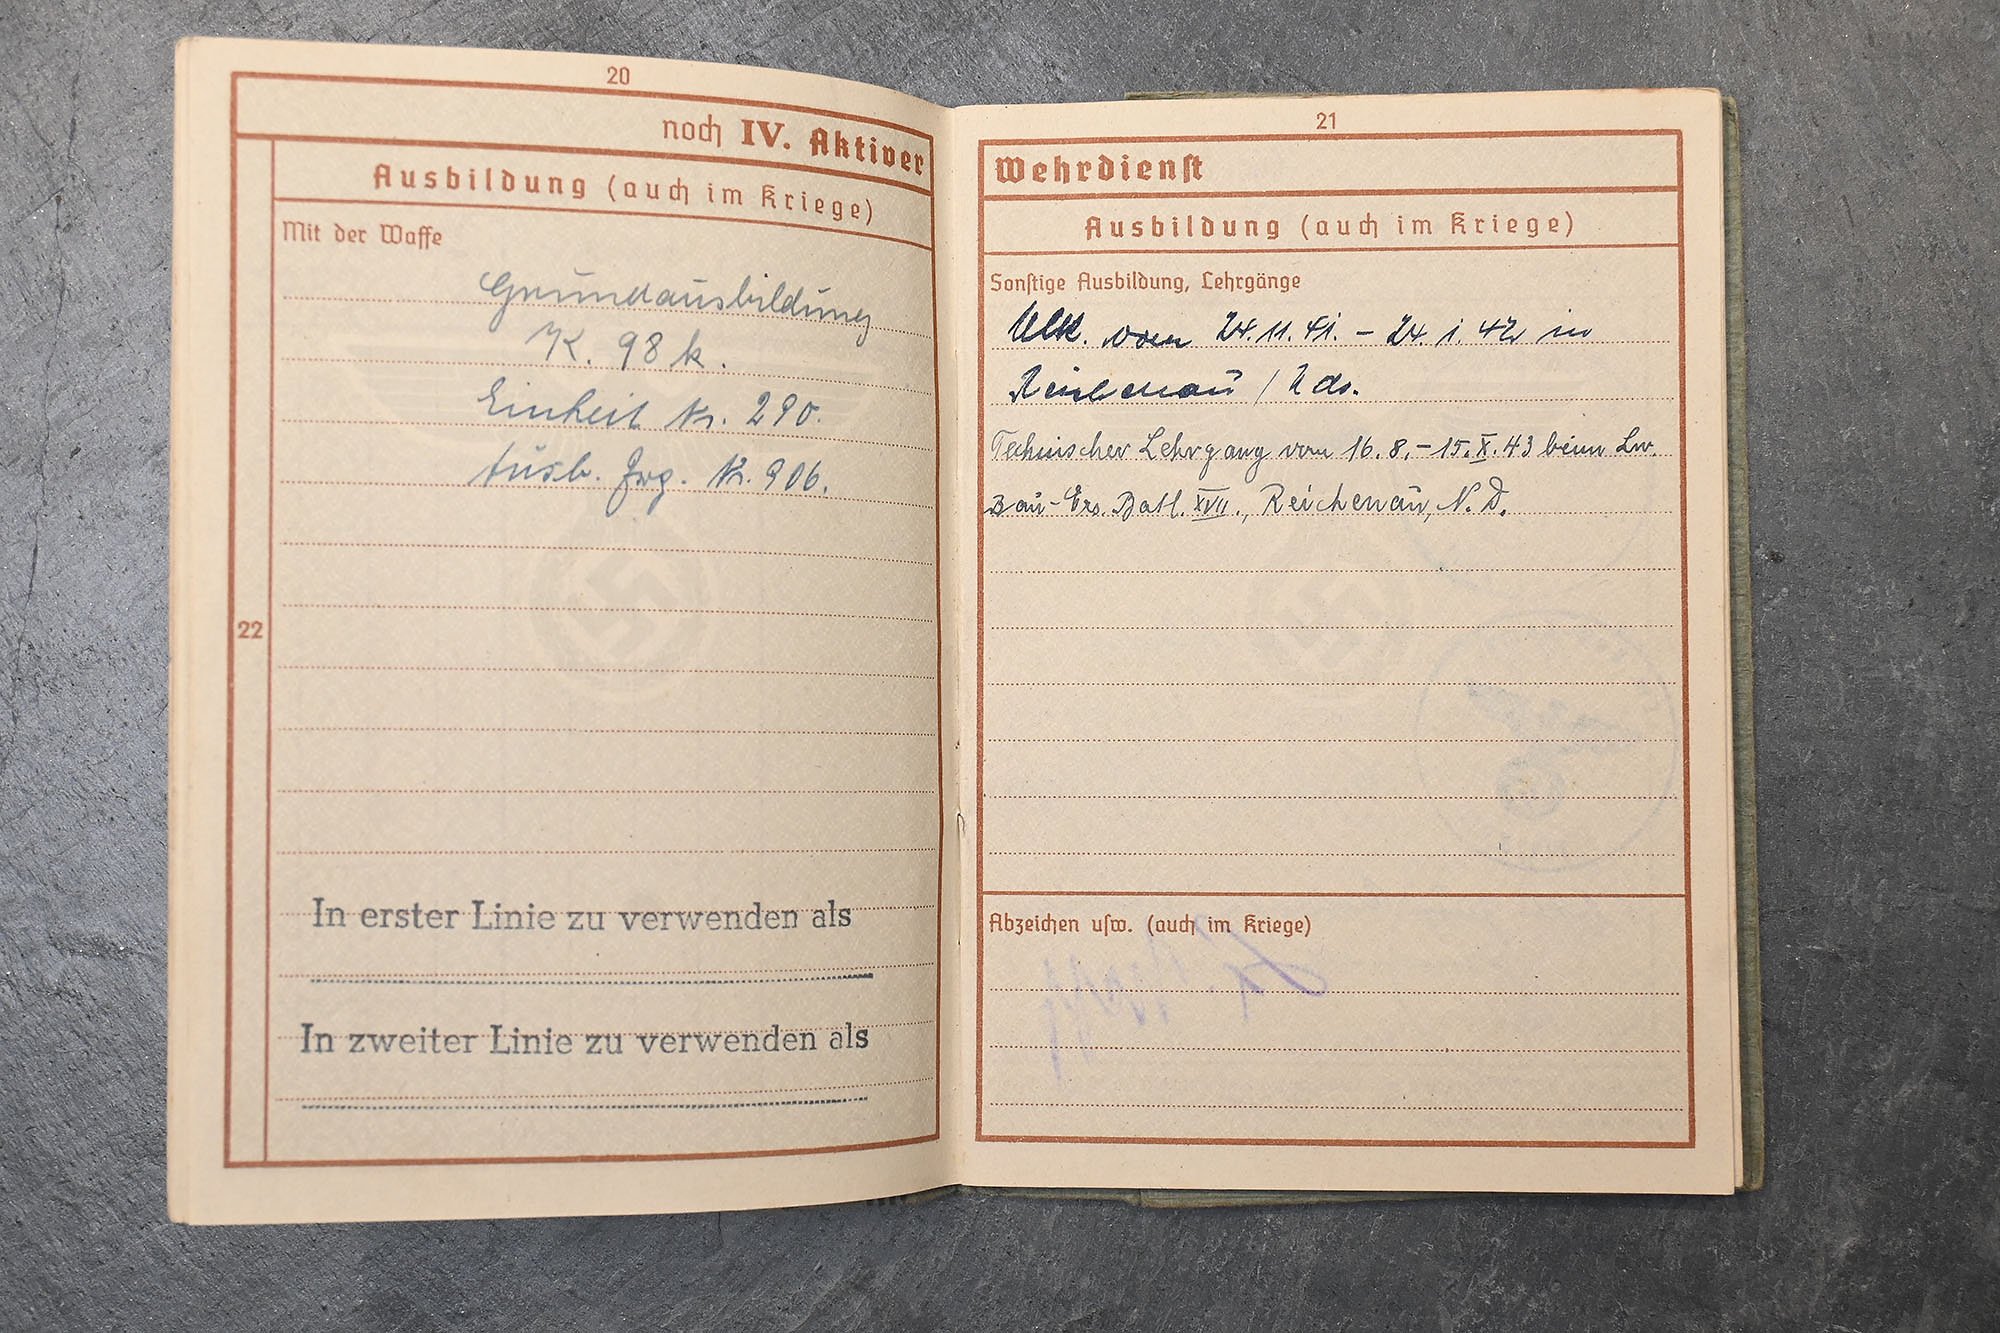 20
noch IV. Aktiver
Ausbildung (auch im Kriege)
Mit der Waffe
Grundausbildung
K. 98 k.
Einheit Nr. 290.
Ausb. Nr. 906.
22
In erster Linie zu verwenden als
In zweiter Linie zu verwenden als
21
Wehrdienst
Ausbildung (auch im Kriege)
Sonstige Ausbildung, Lehrgänge
vom 24.11.41. - 24.1.42 in
Reichenau / Nds.
Technischer Lehrgang vom 16.8.-15.X.43 beim Lw.
Bau-Ers. Batl. XVII., Reichenau, N.D.
Abzeichen usw. (auch im Kriege)